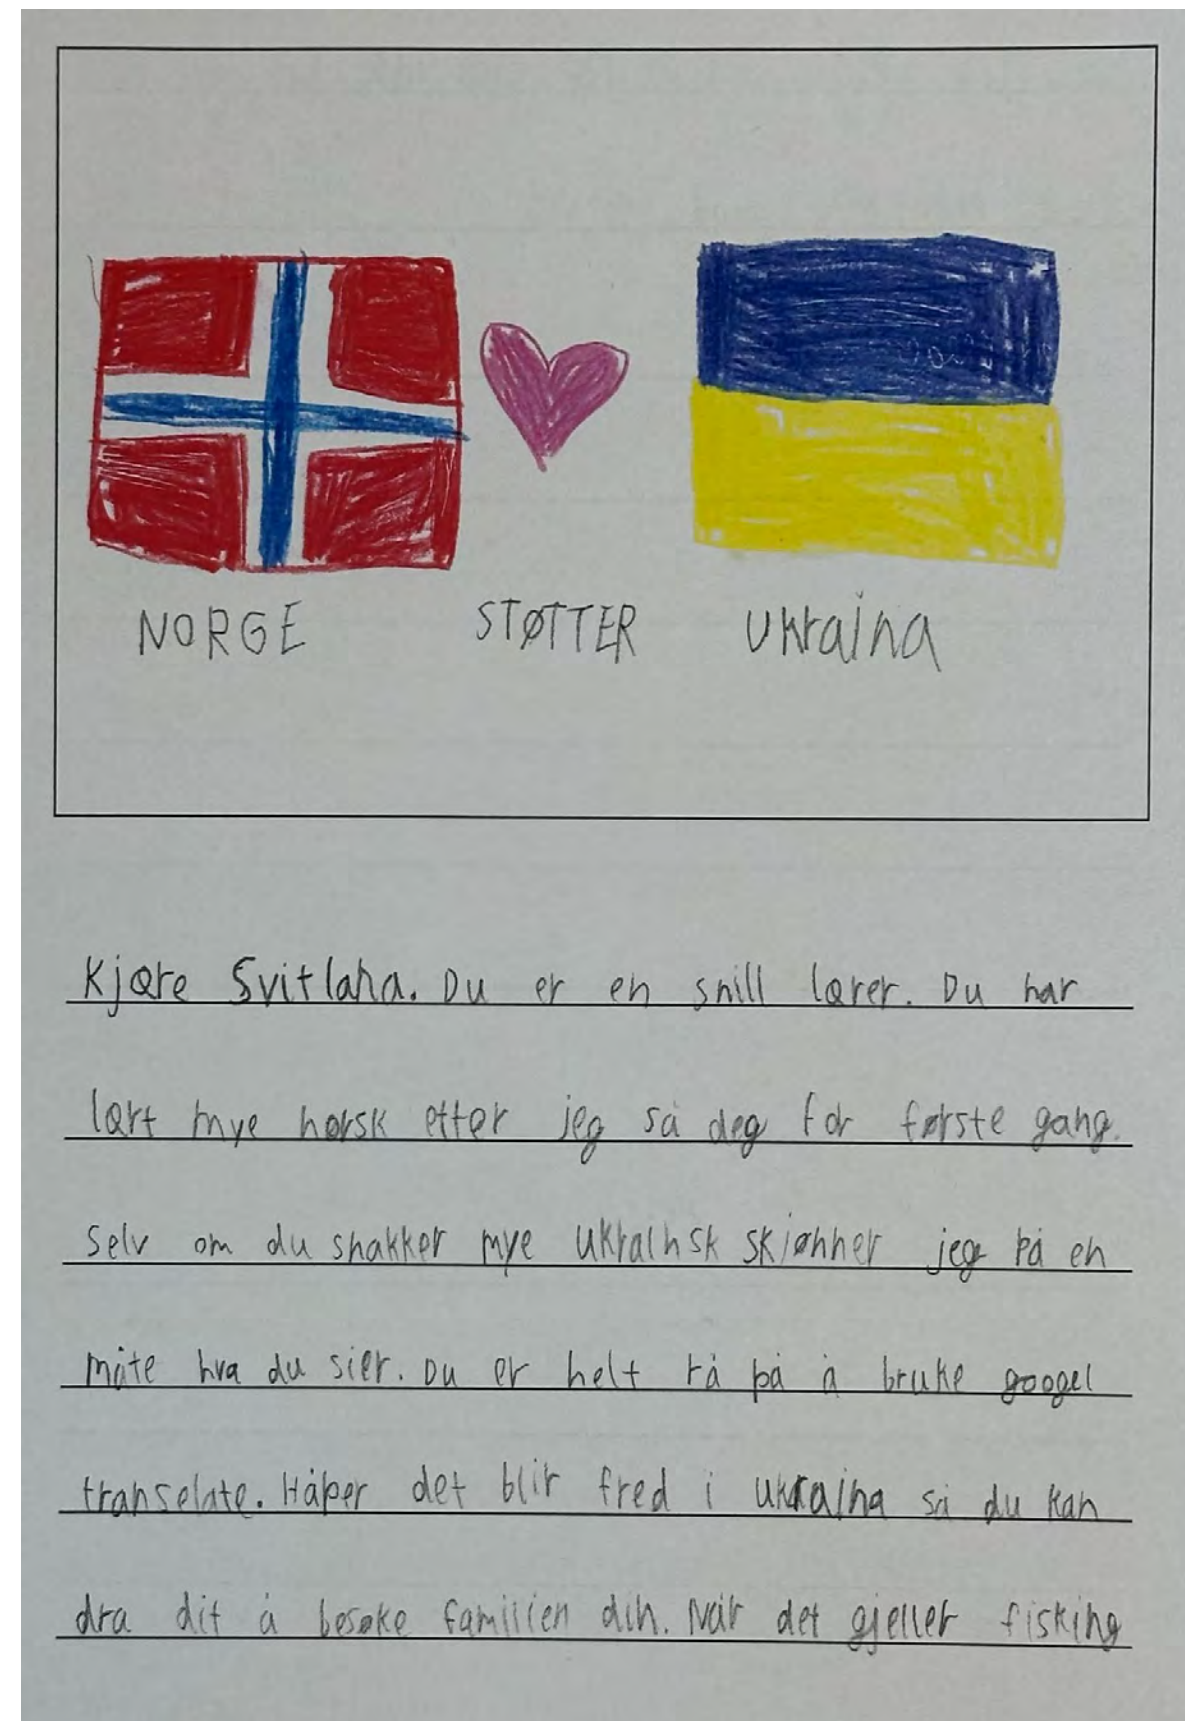 NORGE STØTTER Ukraina
Kjære Svitlana. Du er en snill lærer. Du har
lært mye norsk etter jeg så deg for første gang.
Selv om du snakker mye ukrainsk skjønner jeg på en
måte hva du sier. Du er helt rå på å bruke googel
transelate. Håper det blir fred i ukraina så du kan
dra dit å besøke familien din. Når det gjeller fisking